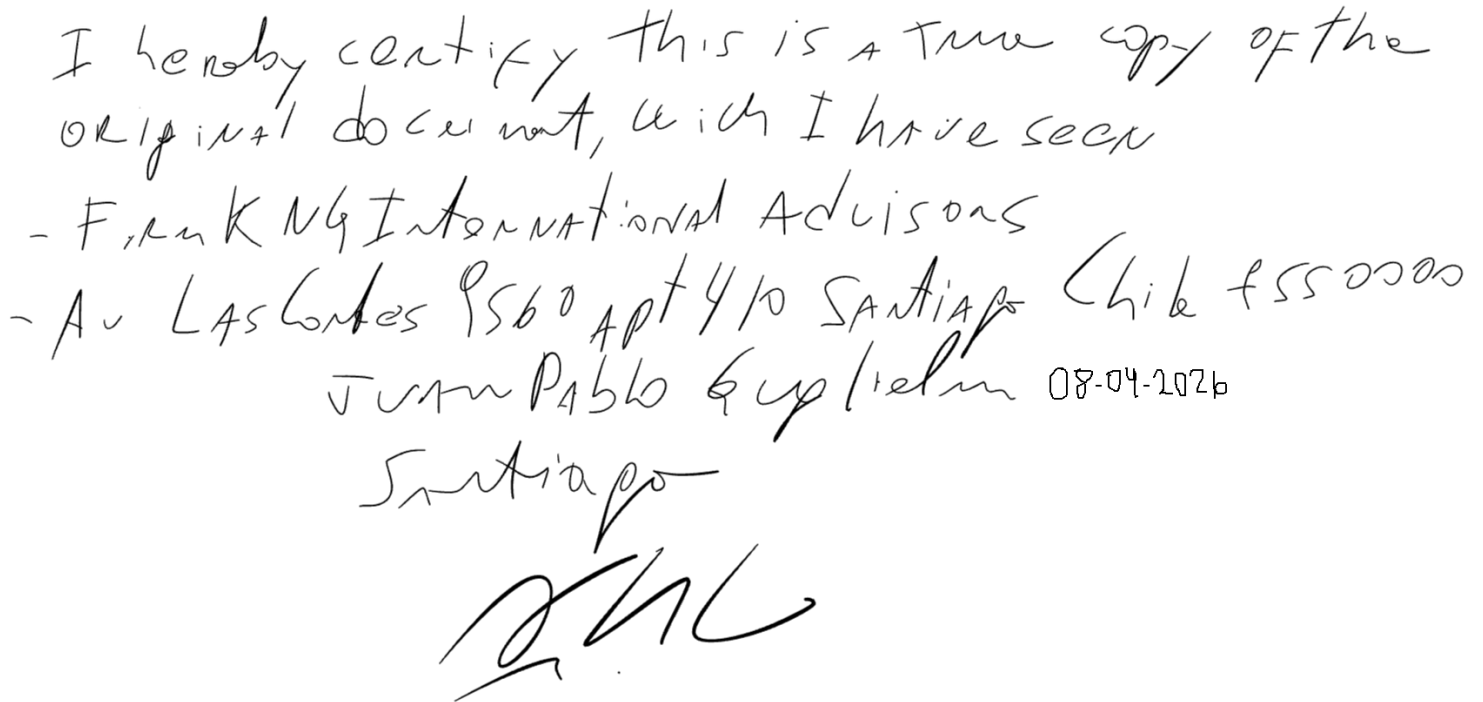 I hereby certify this is A True copy OF the
ORIgiNAl document, wich I hAve seen
- Firm KNG InterNAtioNAl Advisors
- Av LAs Condes 9560 Apt 410 SANtiAgo Chile 7550000
JuAn PAblo Guglielmi 08-04-2026
Santiago